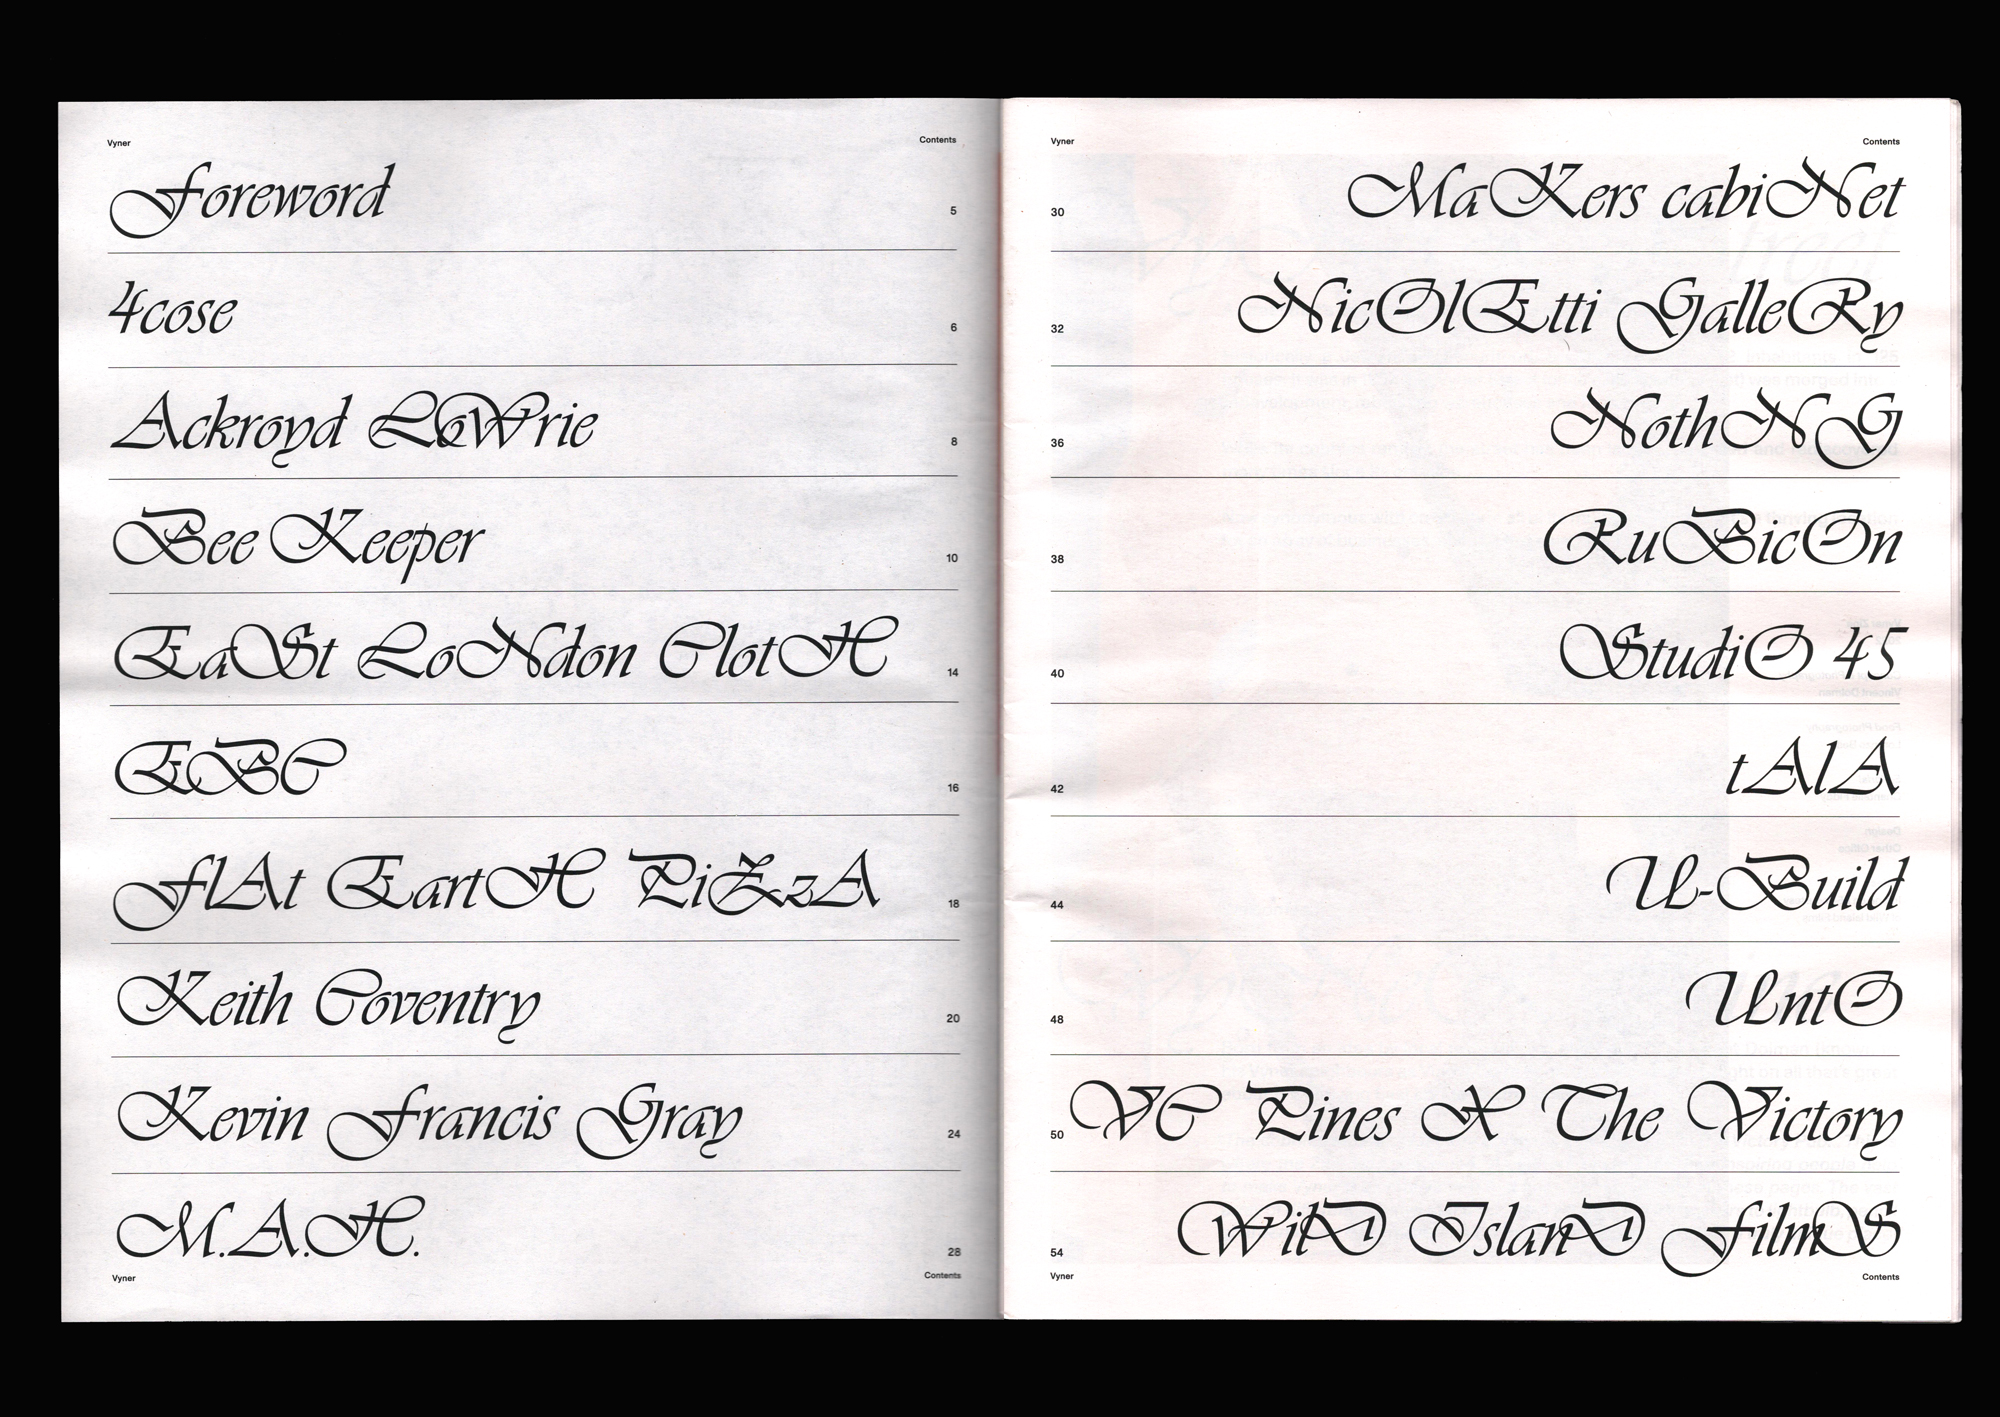 Vyner Contents
Foreword 5
4cose 6
Ackroyd LoWrie 8
Bee Keeper 10
EaSt LoNdon ClotH 14
EBC 16
FlAt EartH PiZzA 18
Keith Coventry 20
Kevin Francis Gray 24
M.A.H. 28
Vyner Contents
Vyner Contents
30 MaKers cabiNet
32 NicOlEtti GalleRy
36 NothNG
38 RuBicOn
40 StudiO 45
42 tAlA
44 U-Build
48 UntO
50 VC Pines X The Victory
54 WilD IslanD FilmS
Vyner Contents